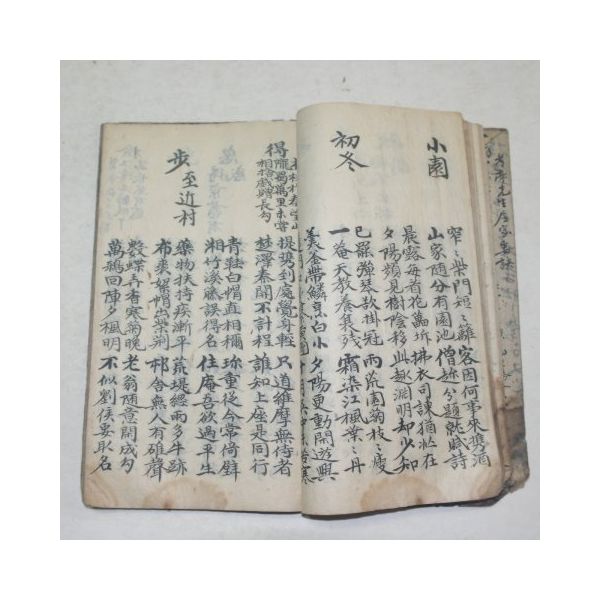 小園
窄窄柴門短短籬 客因何事來携酒
山家隨分有園池 僧趁分題就賦詩
晨露每看花蕊坼 拂衣司諫猶在
夕陽頻見樹陰移 此趣淵明却少知
初冬
已罷彈琴欲掛冠 雨荒園菊枝枝瘦
一庵天教養衰殘 霜染江楓葉葉丹
金帶鱗烹白小 夕陽更動閑遊興
得
隴蜀萬里未嘗
相捨戲贈長句
提携到處覺身輕 只道維摩無侍者
楚澤秦關不計程 誰知上座是同行
青鞋白帽直相稱 珍重從今常倚壁
湘竹溪藤誤得名 住庵吾欲過平生
步至近村
藥物扶持疾漸平 荒堤經雨多牛跡
布裘絮帽出柴荊 村舍無人有碓聲
數蝶弄香寒菊晚 老翁隨意閒成句
萬鴉回陣夕楓明 不似劉侯要取名